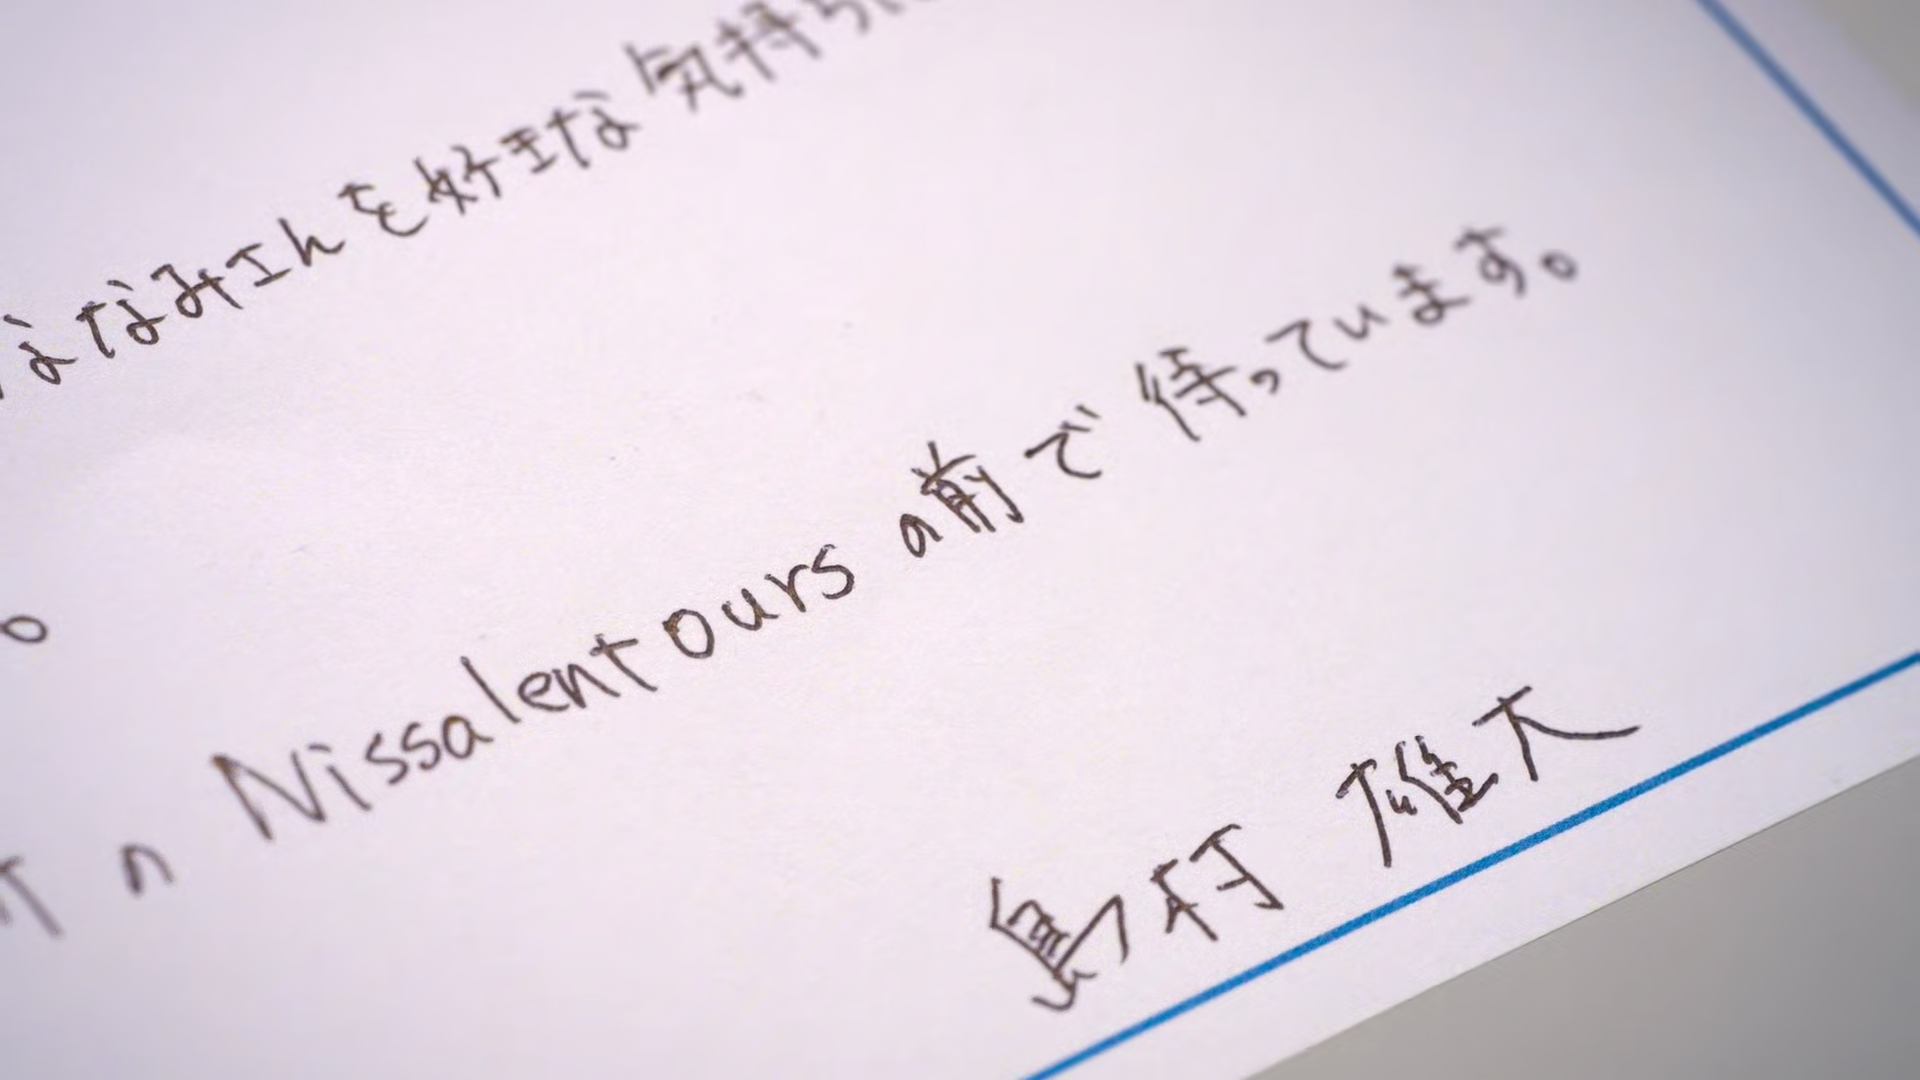 ななみさんを好きな気持ち
。
の Nissalentours の前で待っています。
島村 雄大